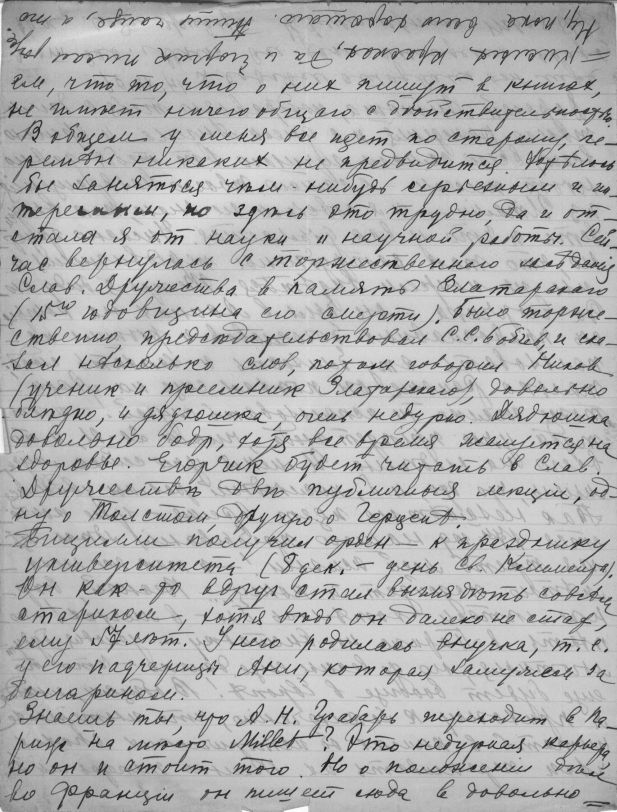 ем, что то, что о них пишут в книгах,
не имѣет ничего общаго с дѣйствительностью.
В общем у меня все идет по старому, пе-
ремѣн никаких не предвидится. Хотѣлось
бы заняться чѣм-нибудь серьезным и ин-
тересным, но здѣсь это трудно, да и от-
стала я от науки и научной работы. Сей-
час вернулась с торжественнаго засѣданія
Слав. Дружества в память Златарскаго
(15ую годовщина его смерти). Было торже-
ственно, предсѣдательствовал С.С. Бобчев, и ска-
зал нѣсколько слов, потом говорил Ников
(ученик и преемник Златарскаго), довольно
блѣдно, и дядюшка, очень недурно. Дядюшка
довольно бодр, хотя все время жалуется на
здоровье. Егорчик будет читать в Слав.
Дружествѣ двѣ публичныя лекціи, од-
ну о Толстом, другую о Герценѣ.
Бицилли получил орден к празднику
университета (8 дек. – день Св. Климента).
Он как-то вдруг стал выглядѣть совсѣм
стариком, хотя вѣдь он далеко не стар,
ему 57 лѣт. У него родилась внучка, т.е.
у его падчерицы Ани, которая замужем за
болгарином.
Знаешь ты, что А.Н. Грабарь переходит в Па-
риж на мѣсто Millet? Это недурная карьера,
но он и стоит того. Но о положеніи дѣл
во Франціи он пишет сюда в довольно =
= кислых красках, да и Георгій писал
Ну, пока всего хорошаго. Пиши чаще, а то